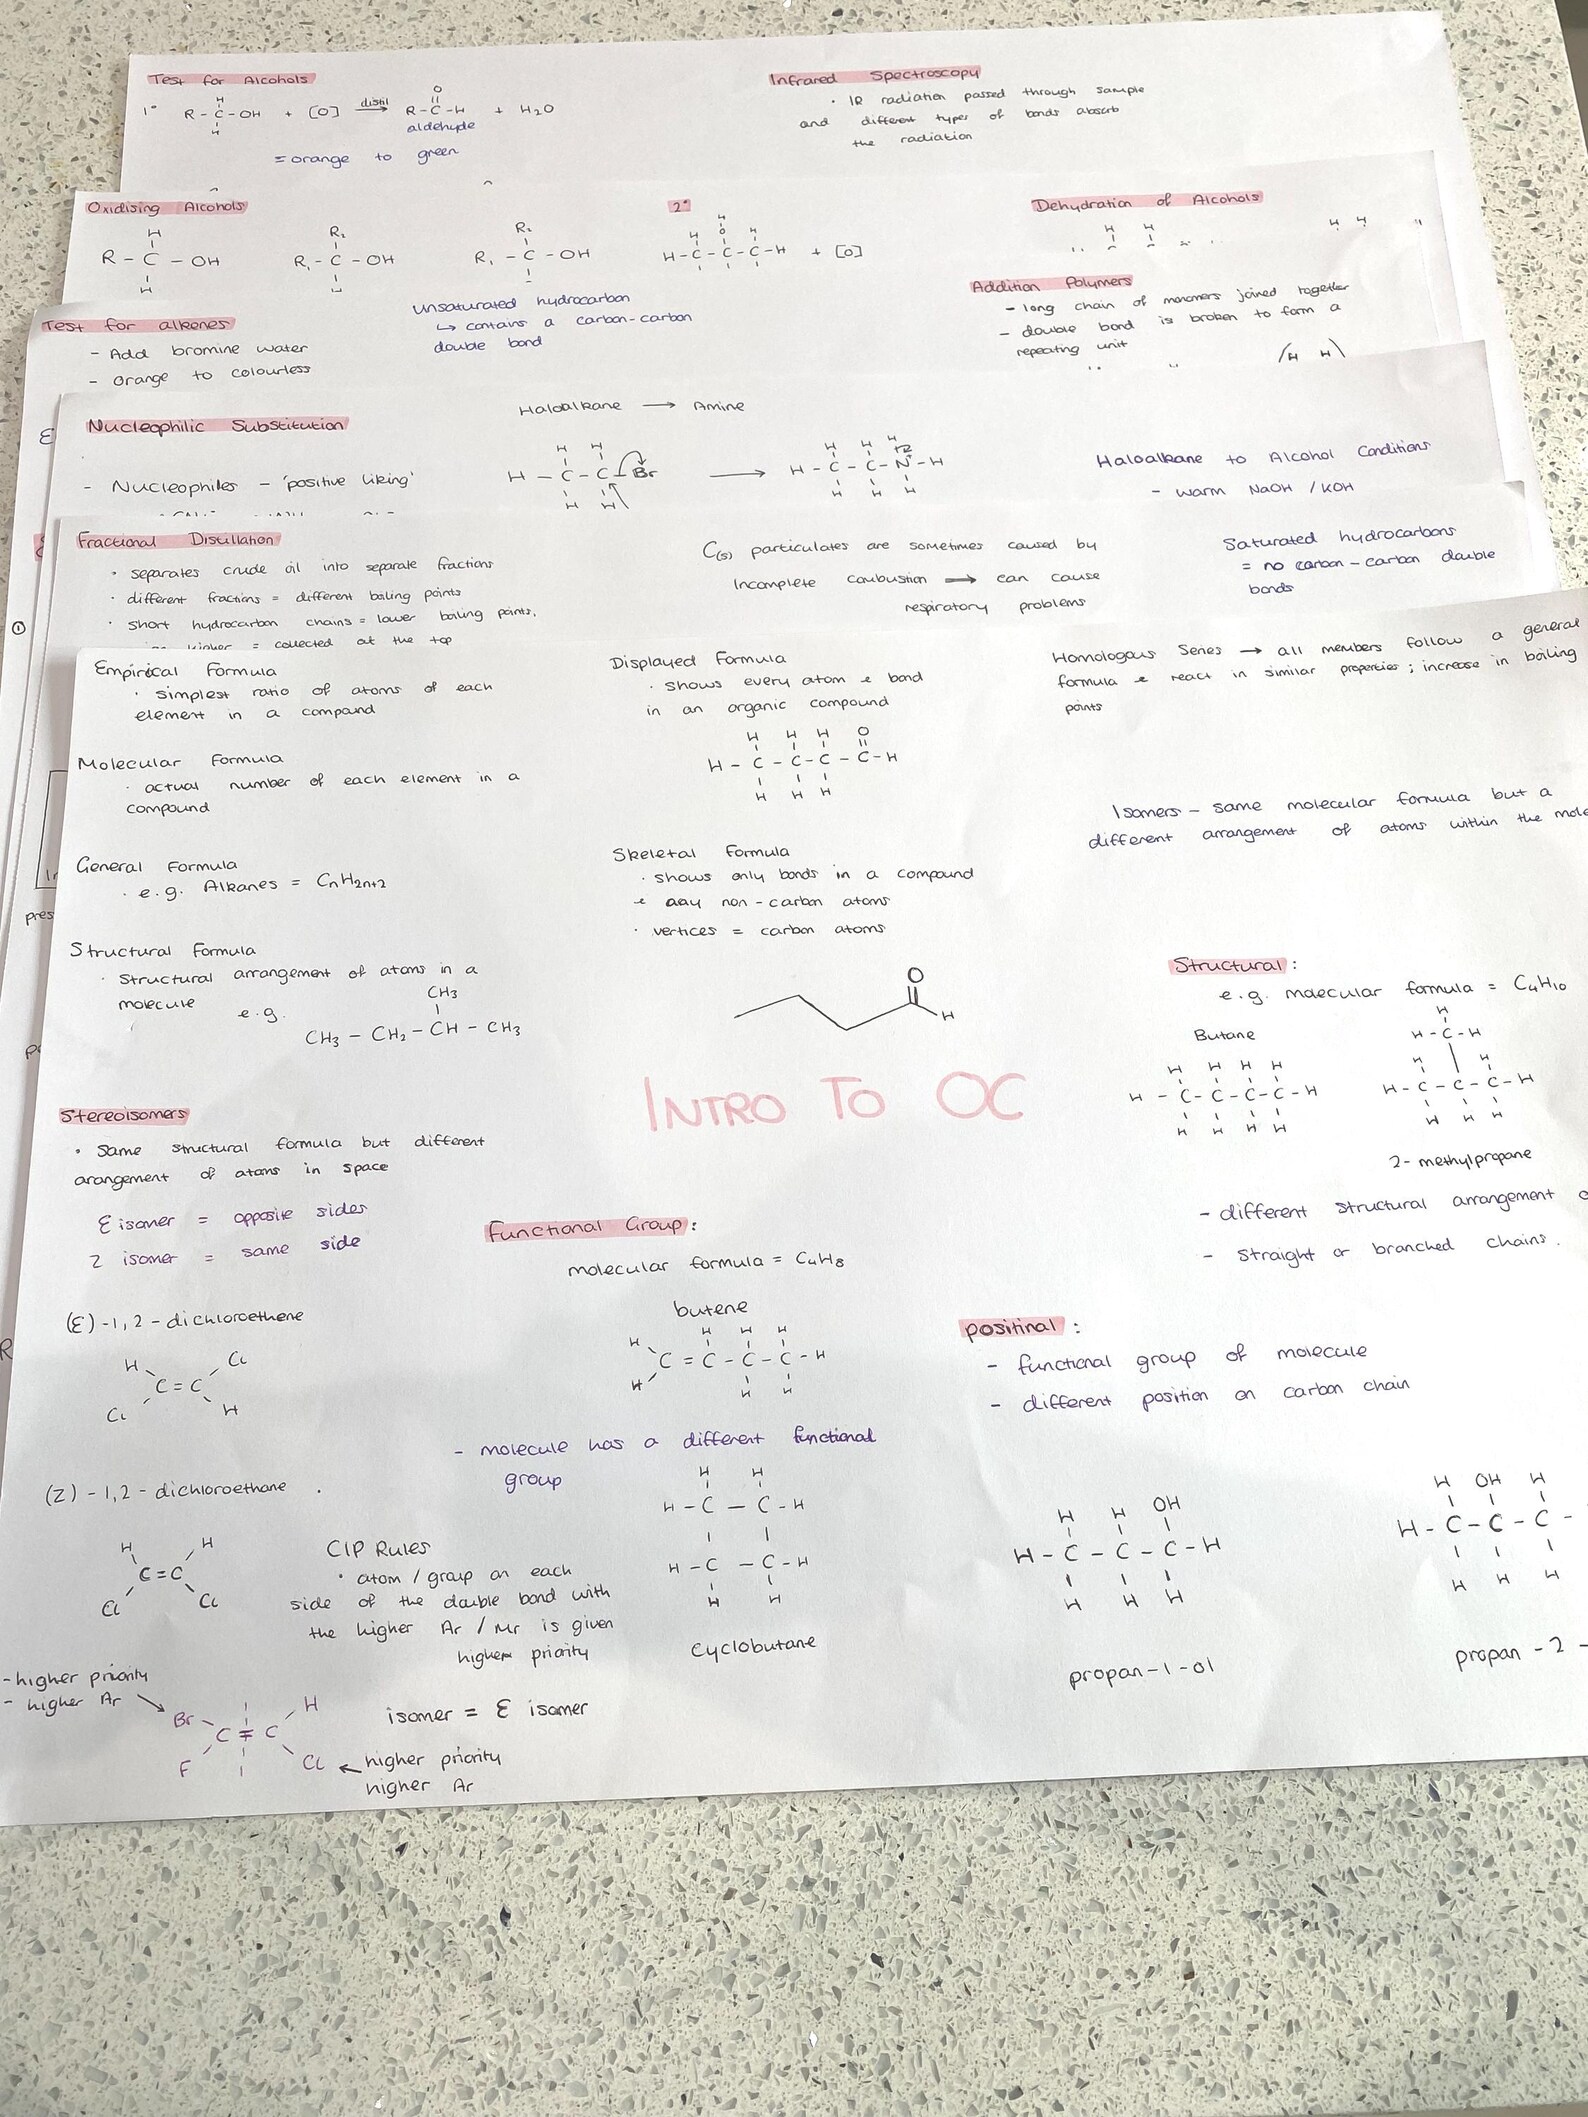 Test for Alcohols
1° R - C - OH + [O] distil → R - C - H + H2O
aldehyde
= orange to green
Infrared Spectroscopy
· IR radiation passed through sample
and different types of bonds absorb
the radiation
Oxidising Alcohols
R - C - OH
R1 - C - OH
R1 - C - OH
2°
H - C - C - C - H + [O]
Dehydration of Alcohols
Test for alkenes
- Add bromine water
- orange to colourless
unsaturated hydrocarbon
↳ contains a carbon-carbon
double bond
Addition Polymers
- long chain of monomers joined together
- double bond is broken to form a
repeating unit
Nucleophilic Substitution
- Nucleophiles - 'positive liking'
Haloalkane → Amine
H - C - C - Br → H - C - C - N - H
Haloalkane to Alcohol Conditions
- warm NaOH / KOH
Fractional Distillation
· separates crude oil into separate fractions
· different fractions = different boiling points
· short hydrocarbon chains = lower boiling points.
= collected at the top
C(s) particulates are sometimes caused by
incomplete combustion → can cause
respiratory problems
Saturated hydrocarbons
= no carbon-carbon double
bonds
Empirical Formula
· simplest ratio of atoms of each
element in a compound
Molecular Formula
· actual number of each element in a
compound
General Formula
· e.g. Alkanes = CnH2n+2
Structural Formula
· Structural arrangement of atoms in a
molecule
e.g.
CH3
CH3 - CH2 - CH - CH3
Displayed Formula
· shows every atom & bond
in an organic compound
H H H O
H - C - C - C - C - H
H H H
Skeletal Formula
· shows only bonds in a compound
& any non-carbon atoms
· vertices = carbon atoms
O
H
Homologous Series → all members follow a general
formula & react in similar properties ; increase in boiling
points
Isomers - same molecular formula but a
different arrangement of atoms within the mole
INTRO TO OC
Structural :
e.g. molecular formula = C4H10
Butane
H H H H
H - C - C - C - C - H
H H H H
H
H - C - H
H H
H - C - C - C - H
H H H
2-methylpropane
- different structural arrangement
- straight or branched chains.
Stereoisomers
· Same structural formula but different
arangement of atoms in space
E isomer = opposite sides
Z isomer = same side
(E) -1,2 - dichloroethene
H Cl
C = C
Cl H
(Z) -1,2 - dichloroethane .
H H
C = C
Cl Cl
CIP Rules
· atom / group on each
side of the double bond with
the higher Ar / Mr is given
higher priority
- higher priority
- higher Ar
Br H
C = C
F Cl
isomer = E isomer
← higher priority
higher Ar
Functional Group :
molecular formula = C4H8
butene
H H H H
C = C - C - C - H
H H H
- molecule has a different functional
group
H H
H - C - C - H
H - C - C - H
H H
cyclobutane
positinal :
- functional group of molecule
- different position on carbon chain
H H OH
H - C - C - C - H
H H H
propan-1-ol
H OH H
H - C - C - C -
H H H
propan - 2 -